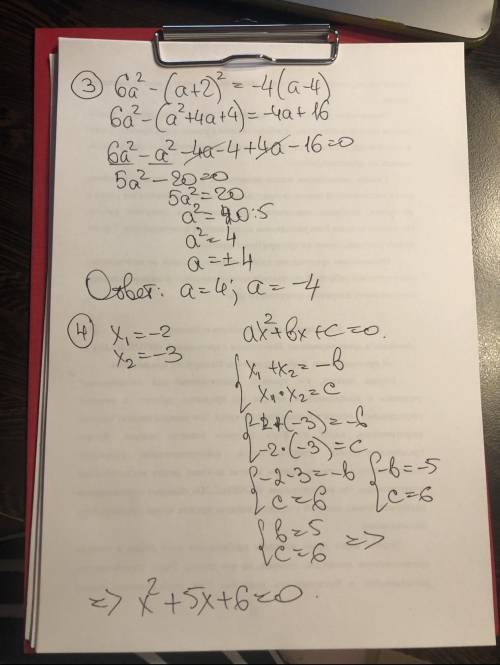 ③ 6a² - (a+2)² = -4(a-4)
6a² - (a²+4a+4) = -4a+16
6a² - a² - 4a - 4 + 4a - 16 = 0
5a² - 20 = 0
5a² = 20
a² = 20:5
a² = 4
a = ±4
Ответ: a = 4; a = -4
④ x₁ = -2
x₂ = -3
ax² + bx + c = 0.
{ x₁ + x₂ = -b
x₁ · x₂ = c
{ -2 + (-3) = -b
-2 · (-3) = c
{ -2 - 3 = -b
c = 6
{ -b = -5
c = 6
{ b = 5
c = 6 =>
=> x² + 5x + 6 = 0.